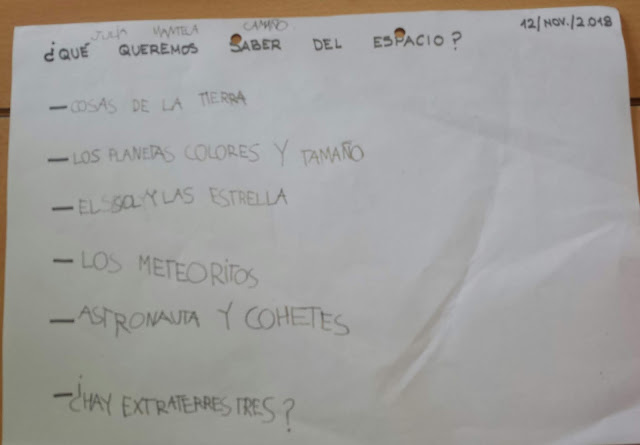 JULIA MANTECA CAMINO
12/NOV./2018
¿QUÉ QUEREMOS SABER DEL ESPACIO?
— COSAS DE LA TIERRA
— LOS PLANETAS COLORES Y TAMAÑO
— EL SOL Y LAS ESTRELLA
— LOS METEORITOS
— ASTRONAUTA Y COHETES
— ¿HAY EXTRATERRESTRES?